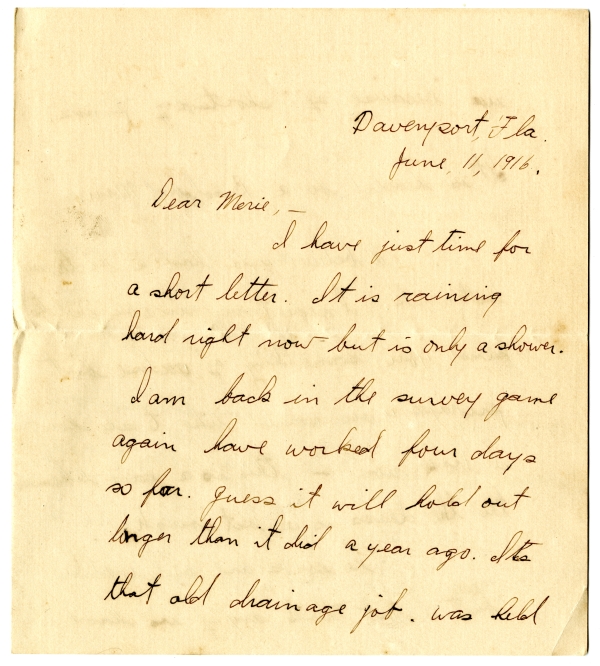 Davenport, Fla.
June, 11, 1916.
Dear Merie, —
I have just time for
a short letter. It is raining
hard right now but is only a shower.
I am back in the survey game
again have worked four days
so far. Guess it will hold out
longer than it did a year ago. Its
that old drainage job. was held